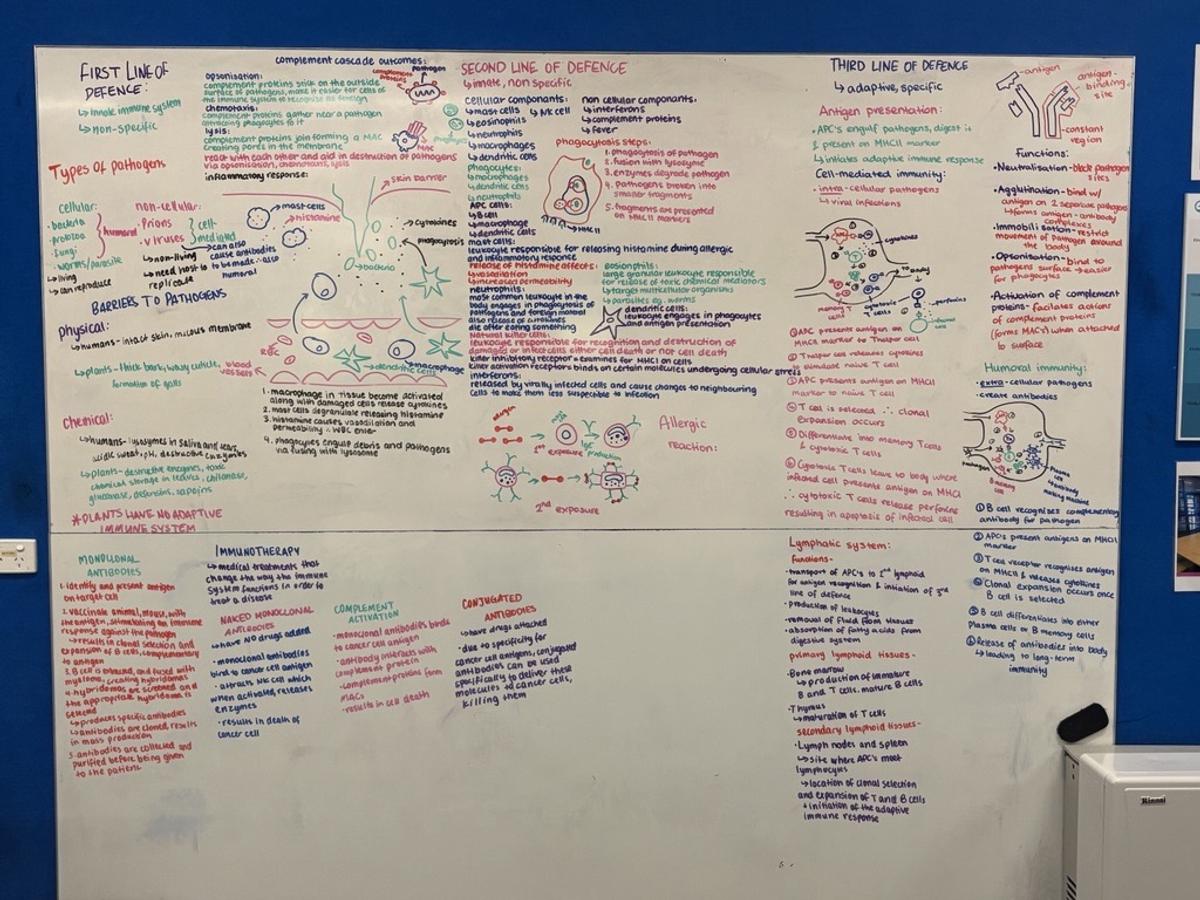 FIRST LINE OF
DEFENCE:
↳ innate immune system
↳ non-specific
Types of pathogens
cellular:
· bacteria
· protozoa
· fungi
· worms/parasite
} humoral
↳ living
↳ can reproduce
non-cellular:
· Prions
· viruses
} cell-
mediated
↳ non-living
↳ need host to
replicate
↳ can also
cause antibodies
to be made ∴ also
humoral
BARRIERS TO PATHOGENS
physical:
↳ humans- intact skin, mucous membrane
↳ plants- thick bark, waxy cuticle,
formation of galls
chemical:
↳ humans- lysosymes in saliva and tears,
acidic sweat, pH, destructive enzymes
↳ plants- destructive enzymes, toxic
chemical storage in leaves, chitanase,
glucanase, defensins, saponins
*PLANTS HAVE NO ADAPTIVE
IMMUNE SYSTEM
complement cascade outcomes:
opsonisation:
complement proteins stick on the outside
surface of pathogens, make it easier for cells of
the immune system to recognise as foreign
chemotaxis:
complement proteins gather near a pathogen
attracting phagocytes to it
lysis:
complement proteins join forming a MAC
creating pores in the membrane
react with each other and aid in destruction of pathogens
via opsonisation, chemotaxis, lysis
inflammatory response:
complement
proteins
pathogen
skin barrier
mast cells
histamine
cytokines
phagocytosis
bacteria
RBC
blood
vessels
dendritic cells
macrophage
1. macrophage in tissue become activated
along with damaged cells release cytokines
2. mast cells degranulate releasing histamine
3. histamine causes vasodilation and
permeability ∴ WBC enter
4. phagocytes engulf debris and pathogens
via fusing with lysosome
SECOND LINE OF DEFENCE
↳ innate, non specific
cellular componants:
↳ mast cells
↳ NK cell
↳ eosinophils
↳ neutrophils
↳ macrophages
↳ dendritic cells
phagocytes:
↳ macrophages
↳ dendritic cells
↳ neutrophils
APC cells:
↳ B cell
↳ macrophage
↳ dendritic cells
non cellular componants:
↳ interferons
↳ complement proteins
↳ fever
phagocytosis steps:
1. phagocytosis of pathogen
2. fusion with lysosyme
3. enzymes degrade pathogen
4. pathogens broken into
smaller fragments
5. fragments are presented
on MHCII markers
MHC II
mast cells:
leukocyte responsible for releasing histamine during allergic
and inflammatory response
release of histamine affects:
↳ vasodilation
↳ increased permeability
neutrophils:
most common leukocyte in the
body engages in phagocytosis of
pathogens and foreign material
also release of cytokines
die after eating something
eosinophils:
large granular leukocyte responsible
for release of toxic chemical mediators
↳ target multicellular organisms
↳ parasites eg. worms
dendritic cells:
leukocyte engages in phagocytes
and antigen presentation
Natural killer cells:
leukocyte responsible for recognition and destruction of
damaged or infect cells either cell death or not cell death
killer inhibitory receptor = examines for MHC1 on cells
killer activation receptors binds on certain molecules undergoing cellular stress
interferons:
released by virally infected cells and cause changes to neighbouring
cells to make them less suspectible to infection
Allergic
reaction:
1st exposure
IgE
production
2nd exposure
THIRD LINE OF DEFENCE
↳ adaptive, specific
Antigen presentation:
· APC's engulf pathogens, digest it
& present on MHCII marker
↳ initiates adaptive immune response
Cell-mediated immunity:
· intra-cellular pathogens
↳ viral infections
cytokines
memory T
cytotoxic
T cells
to body
perforins
infected
cell
① APC presents antigen on
MHCII marker to Thelper cell
② Thelper cell releases cytokines
to stimulate naive T cell
③ APC presents antigen on MHCII
marker to naive T cell
④ T cell is selected ∴ clonal
expansion occurs
⑤ Differentiate into memory T cells
& cytotoxic T cells
⑥ Cytotoxic T cells leave to body where
infected cell presents antigen on MHCI
∴ cytotoxic T cells release perforins
resulting in apoptosis of infected cell
antigen
antigen-
binding
site
constant
region
Functions:
· Neutralisation- block pathogen
sites
· Agglutination- bind w/
antigen on 2 seperate pathogens
↳ forms antigen-antibody
complexes
· Immobilisation- restrict
movement of pathogen around
the body
· Opsonisation- bind to
pathogens surface → easier
for phagocytes
· Activation of complement
proteins- facilates actions
of complement proteins
(forms MACs) when attached
to surface
Humoral immunity:
· extra-cellular pathogens
· create antibodies
pathogen
B memory
cell
Plasma
cell
↳ antibody
making machine
① B cell recognises complementary
antibody for pathogen
② APC's present antigens on MHCII
marker
③ T cell receptor recognises antigen
on MHCII & releases cytokines
④ Clonal expansion occurs once
B cell is selected
⑤ B cell differentiates into either
plasma cells or B memory cells
⑥ Release of antibodies into body
↳ leading to long-term
immunity
MONOCLONAL
ANTIBODIES
1. identify and present antigen
on target cell
2. vaccinate animal, mouse, with
the antigen, stimulating an immune
response against the pathogen
↳ results in clonal selection and
expansion of B cells, complementary
to antigen
3. B cell is extracted, and fused with
myeloma, creating hybridomas
4. hybridomas are screened and
the appropriate hybridoma is
selected
↳ produces specific antibodies
↳ antibodies are cloned, results
in mass production
5. antibodies are collected and
purified before being given
to the patient
IMMUNOTHERAPY
↳ medical treatments that
change the way the immune
system functions in order to
treat a disease
NAKED MONOCLONAL
ANTIBODIES
↳ have NO drugs added
· monoclonal antibodies
bind to cancer cell antigen
· attracts NK cell which
when activated, releases
enzymes
· results in death of
cancer cell
COMPLEMENT
ACTIVATION
· monoclonal antibodies binds
to cancer cell antigen
· antibody interacts with
complement protein
· complement proteins form
MACs
· results in cell death
CONJUGATED
ANTIBODIES
↳ have drugs attached
· due to specificity for
cancer cell antigens, conjugated
antibodies can be used
specifically to deliver these
molecules to cancer cells,
killing them
Lymphatic system:
functions-
· transport of APC's to 2nd lymphoid
for antigen recognition & initiation of 3rd
line of defence
· production of leukocytes
· removal of fluid from tissues
· absorption of fatty acids from
digestive system
primary lymphoid tissues-
· Bone marrow
↳ production of immature
B and T cells, mature B cells
· Thymus
↳ maturation of T cells
secondary lymphoid tissues-
· Lymph nodes and spleen
↳ site where APC's meet
lymphocytes
↳ location of clonal selection
and expansion of T and B cells
+ initiation of the adaptive
immune response
Rinnai